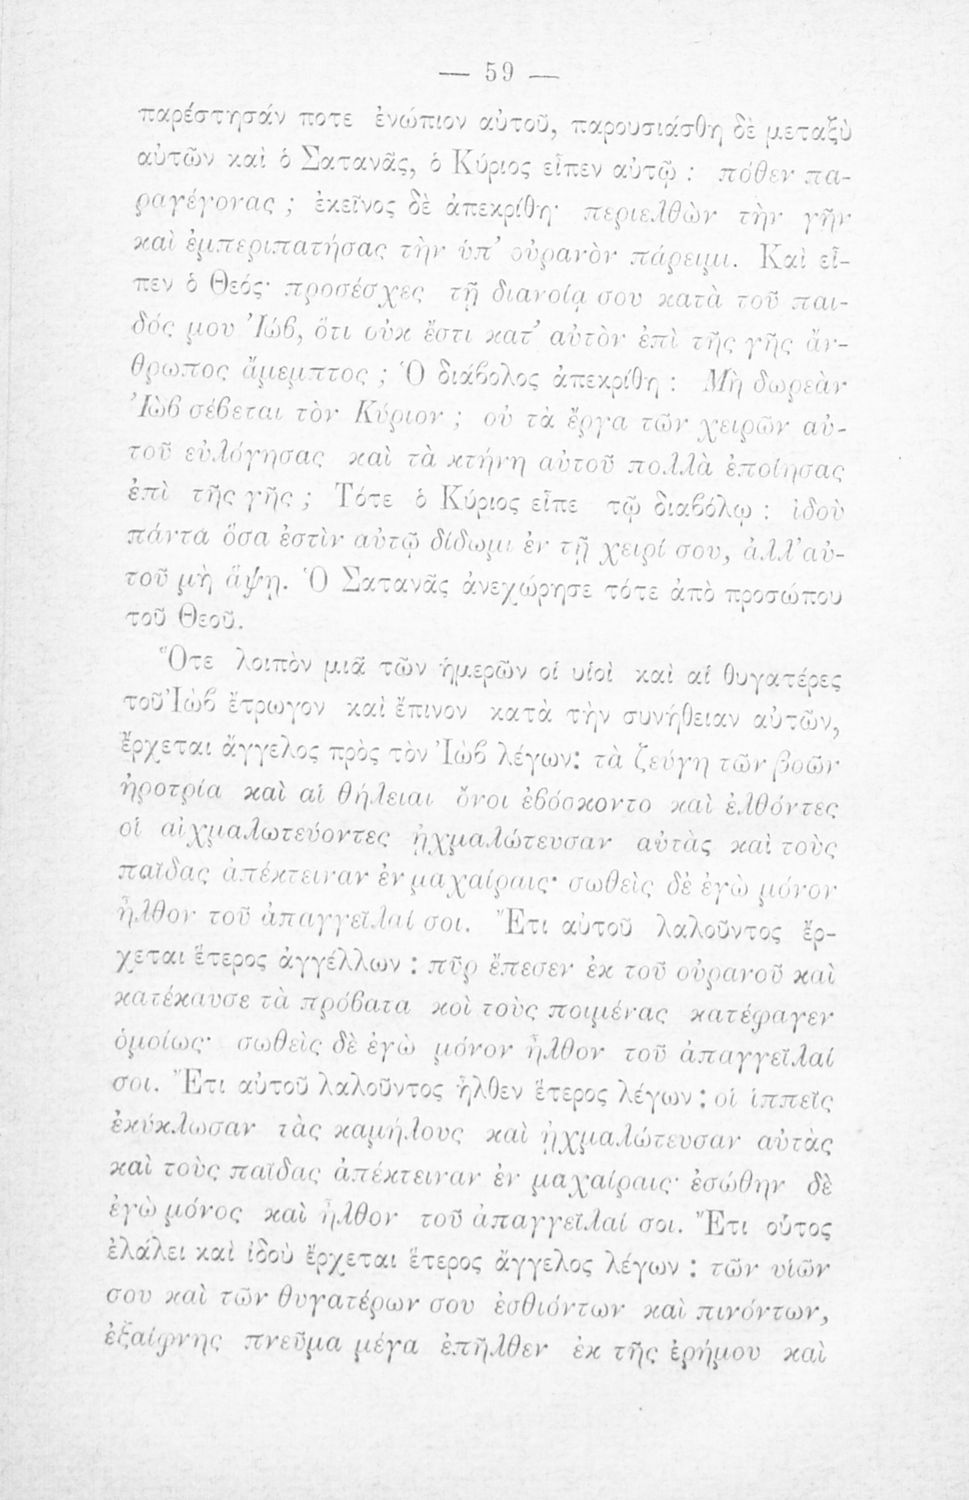 — 59 —
παρέστησάν ποτε ἐνώπιον αὐτοῦ, παρουσιάσθη δὲ μεταξὺ
αὐτῶν καὶ ὁ Σατανᾶς, ὁ Κύριος εἶπεν αὐτῷ : πόθεν πα-
ραγέγονας ; ἐκεῖνος δὲ ἀπεκρίθη· περιελθὼν τὴν γῆν
καὶ ἐμπεριπατήσας τὴν ὑπ’ οὐρανὸν πάρειμι. Καὶ εἶ-
πεν ὁ Θεός· προσέσχες τῇ διανοίᾳ σου κατὰ τοῦ παι-
δός μου Ἰώβ, ὅτι οὐκ ἔστι κατ’ αὐτὸν ἐπὶ τῆς γῆς ἄν-
θρωπος ἄμεμπτος ; Ὁ διάβολος ἀπεκρίθη : Μὴ δωρεὰν
Ἰὼβ σέβεται τὸν Κύριον ; οὐ τὰ ἔργα τῶν χειρῶν αὐ-
τοῦ εὐλόγησας καὶ τὰ κτήνη αὐτοῦ πολλὰ ἐποίησας
ἐπὶ τῆς γῆς ; Τότε ὁ Κύριος εἶπε τῷ διαβόλῳ : ἰδοὺ
πάντα ὅσα ἐστὶν αὐτῷ δίδωμι ἐν τῇ χειρί σου, ἀλλ’ αὐ-
τοῦ μὴ ἅψῃ. Ὁ Σατανᾶς ἀνεχώρησε τότε ἀπὸ προσώπου
τοῦ Θεοῦ.
Ὅτε λοιπὸν μιᾷ τῶν ἡμερῶν οἱ υἱοὶ καὶ αἱ θυγατέρες
τοῦ Ἰὼβ ἔτρωγον καὶ ἔπινον κατὰ τὴν συνήθειαν αὐτῶν,
ἔρχεται ἄγγελος πρὸς τὸν Ἰὼβ λέγων: τὰ ζεύγη τῶν βοῶν
ἠροτρία καὶ αἱ θήλειαι ὄνοι ἐβόσκοντο καὶ ἐλθόντες
οἱ αἰχμαλωτεύοντες ᾐχμαλώτευσαν αὐτὰς καὶ τοὺς
παῖδας ἀπέκτειναν ἐν μαχαίραις· σωθεὶς δὲ ἐγὼ μόνον
ἦλθον τοῦ ἀπαγγεῖλαί σοι. Ἔτι αὐτοῦ λαλοῦντος ἔρ-
χεται ἕτερος ἀγγέλλων : πῦρ ἔπεσεν ἐκ τοῦ οὐρανοῦ καὶ
κατέκαυσε τὰ πρόβατα κοὶ τοὺς ποιμένας κατέφαγεν
ὁμοίως· σωθεὶς δὲ ἐγὼ μόνον ἦλθον τοῦ ἀπαγγεῖλαί
σοι. Ἔτι αὐτοῦ λαλοῦντος ἦλθεν ἕτερος λέγων : οἱ ἱππεῖς
ἐκύκλωσαν τὰς καμήλους καὶ ᾐχμαλώτευσαν αὐτὰς
καὶ τοὺς παῖδας ἀπέκτειναν ἐν μαχαίραις· ἐσώθην δὲ
ἐγὼ μόνος καὶ ἦλθον τοῦ ἀπαγγεῖλαί σοι. Ἔτι οὗτος
ἐλάλει καὶ ἰδοὺ ἔρχεται ἕτερος ἄγγελος λέγων : τῶν υἱῶν
σου καὶ τῶν θυγατέρων σου ἐσθιόντων καὶ πινόντων,
ἐξαίφνης πνεῦμα μέγα ἐπῆλθεν ἐκ τῆς ἐρήμου καὶ